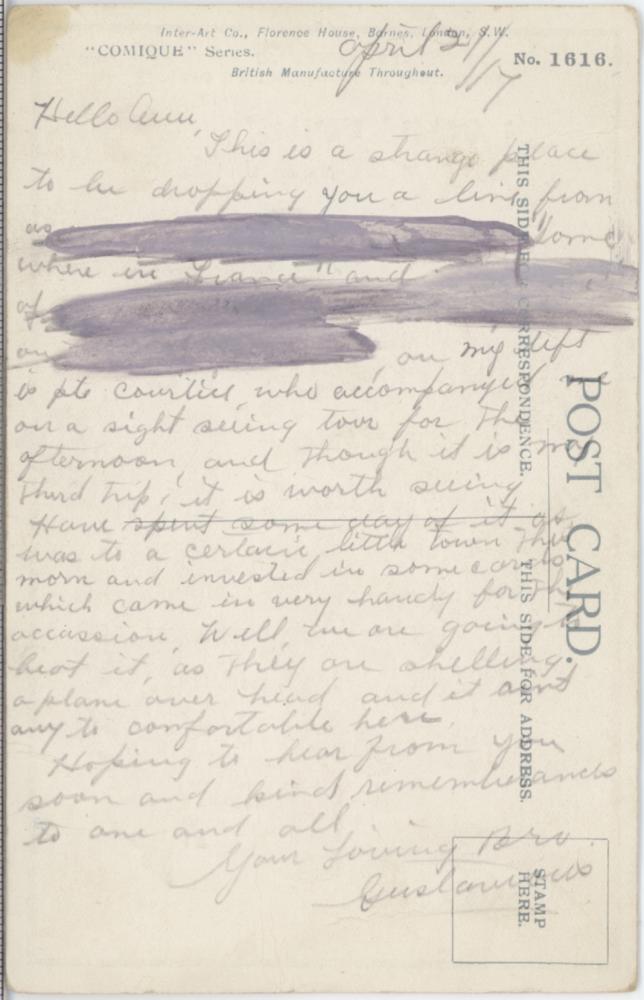 Inter-Art Co., Florence House, Barnes, London, S.W.
"COMIQUE" Series.
No. 1616.
British Manufacture Throughout.
April 2/17
Hello Ann
This is a strange place
to be dropping you a line from
as "Some
where in France" and
of
on my left
is pte who accompanyed me
on a sight seeing tour for the
afternoon, and though it is my
third trip, it is worth seeing
Have spent some day of it as
was to a certain little town this
morn and invested in some cards
which came in very handy for the
occassion. Well we are going to
beat it, as they are shelling
a plane over head and it aint
any to comfortable here.
Hoping to hear from you
soon and kind rememberances
to one and all
Your Loving Bro.
Gustavus
POST CARD.
THIS SIDE FOR CORRESPONDENCE.
THIS SIDE FOR ADDRESS.
STAMP
HERE.